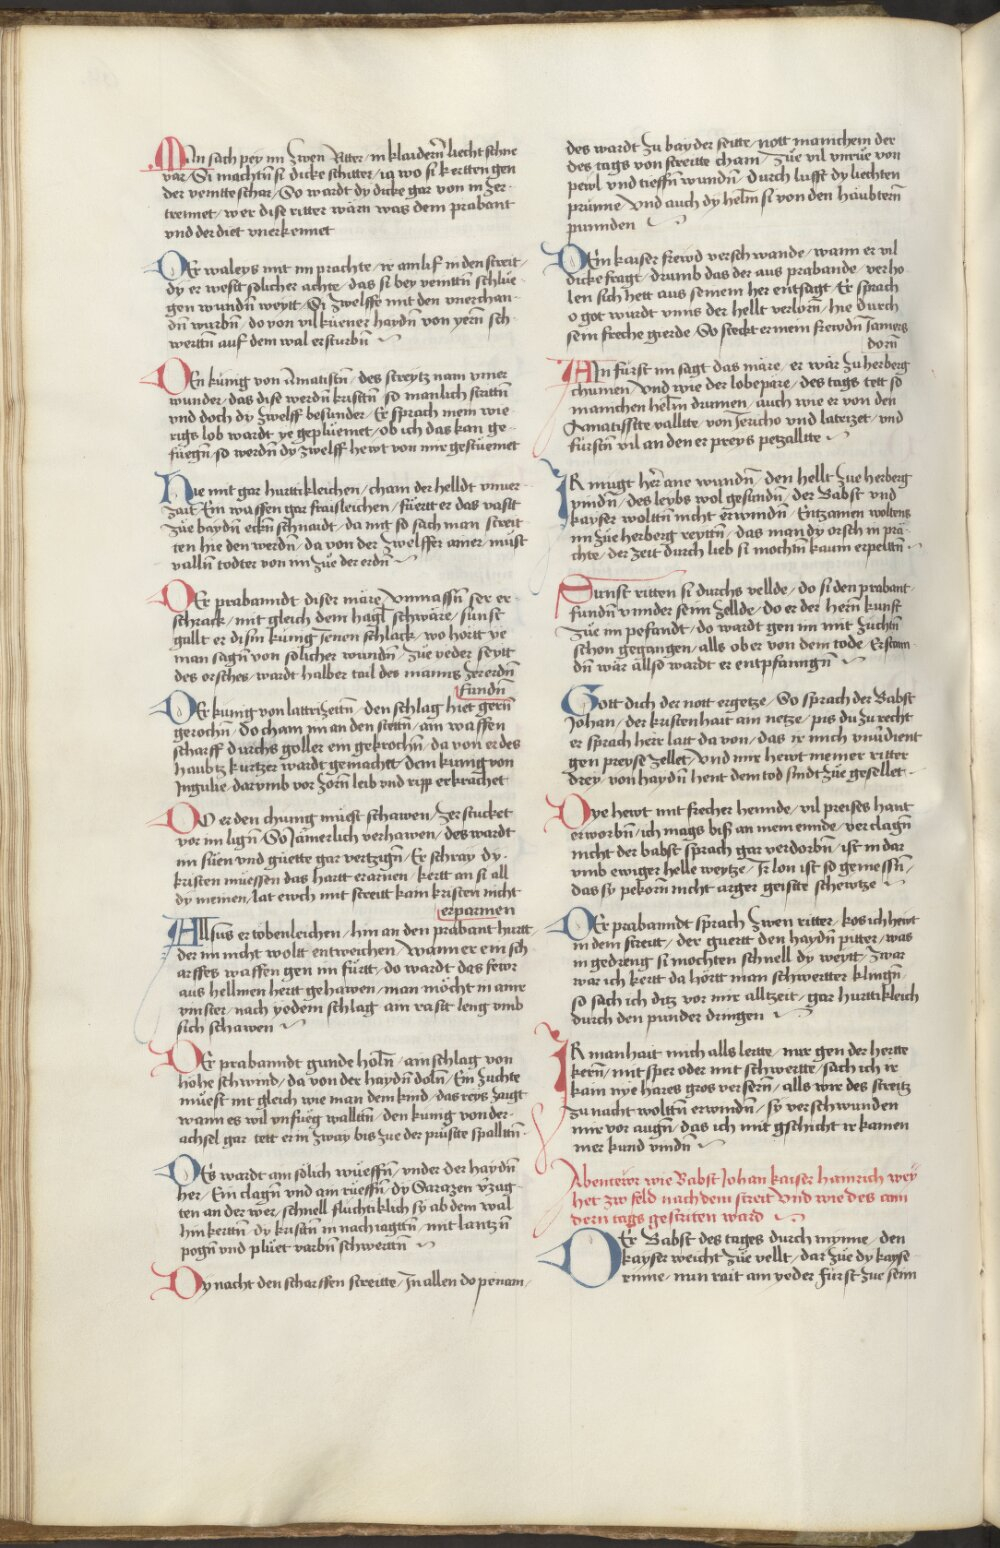 Man sach pey im zwen Ritter / in klaidern liecht schne
var / Si machtn si dicke schitter / ia wo si kertten gen
der veintte schar / So wardt dy dicke gar von in zer-
trennet / wer dise ritter wärn was dem prabant
vnd der diet vnerkennet
DEr waleys mit im prachte / ir ainlif in den streit /
dy er wesst solicher achte / das si bey veinttn schlüe-
gen wundn weytt / Si zwelffe mit den vnerchan-
dn wurbn / do von vil küener haydn von yern sch-
werttn auf dem wal ersturbn
DEn künig von Amatistn / des streytz nam vmer
wunder / das dise werdn kristn / so manlich strittn
vnd doch dy zwelff besunder / Er sprach mein wie-
rigs lob wardt ye geplüemet / ob ich das kan ge-
füegn / so werdn dy zwelff hewt von mir gestüemet
Nie mit gar hurttikleichen / cham der helldt vnuer-
zait / Ein waffen gar fraisleichen / füertt er das vasst
züe baydn eckn schnaidt / da mit so sach man streit-
ten hie den werdn / da von der zwelffer ainer / müst
valln todter von im züe der erdn
DEr prabanndt diser märe / vnmassn ser er-
schrack / mit gleich dem hagl schwäre / sunst
gallt er dism künig jenen schlack / wo hortt ye
man sagn von solicher wundn / züe yeder seytt
des orsches / wardt halber tail des manns zererdn
fundn
DEr kunig von lattrizettn / den schlag hiet gern
gerochn / Do cham im an den stettn / ain waffen
scharff durchs goller ein gekrochn / da von er des
haubtz kurtzer wardt gemachtt / dem kunig von
Ingulie / darvmb vor zorn leib vnd ripp erkrachet
DO er den chunig müest schawen / zerstucket
vor im lign / So Jämerlich verhawen / des wardt
im süen vnd güette gar vertzign / Er schray dy
kristen müessen das hartt erarnen / kertt an si all
dy meinen / lat ewch mit streitt kain kristen nicht
erparmen
Allsus er töbenleichen / hin an den prabant hurtt /
der im nicht wolt entweichen / wann er ein sch
arffes waffen gen im fürtt / do wardt das fewr
aus hellmen hertt gehawen / man möcht in ainr
vinster / nach yedem schlag ain rasst leng vmb
sich schawen
DEr prabanndt gunde holn / ain schlag von
höhe schwind / da von der haydn doln / Ein züchte
müest int gleich wie man dem kind / das reys zaigt
wann es wil vnfüeg walltn / den kunig von der
achsel gar tett er in zway bis zue der prüstte spalltn
DEs wardt ain sölich wüeffn / vnder der haydn
her / Ein clagn vnd ain rüeffn / dy Sarazen vrzag-
ten an der wer / schnell fluchtiklich sy ab dem wal
hin kerttn / dy kristn in nach iagttn / mit lantzn
pogn vnd plüet varbn schwerttn
Dy nacht den scharffen streitte / In allen do penam /
des wardt zu bayder seitte / nott manichem der
des tags von streitte cham / züe vil vnrüe von
pewl vnd tieffn wundn / durch lufft dy liechten
prünne / vnd auch dy helm si von den häubtern
punnden
DEm kaiser frewd verschwande / wann er vil
dicke fragt / drumb das der aus prabande / verho-
len sich hett aus seinem her entsagt / Er sprach
o got wurdt vnns der hellt verlorn / hie durch
sein freche gierde / So steckt er inem frewdn Jamers
dorn
Ain fürst im sagt das märe / er wär zu herberg
chumen / vnd wie der lobepäre / des tags tett so
mamchen helm drumen / auch wie er von den
Amatissttte vallte / von Jericho vnd laterzet / vnd
fürstn vil an den er preys pezalltte
IR mügt her ane wundn / den hellt züe herberg
vindn / des leybs wol gesundn / der Babst vnd
kayser wolttn nicht erwindn / Entzamen wolttens
im züe herberg reyttn / das man dy orsch in prä-
chte / der zeit durch lieb si mochtn kaum erpeittn
Sunst ritten si durchs vellde / do si den prabant
fundn vnnder seim zellde / do er der hern kunft
züe im pefandt / do wardt gen im mit zuchtn
schon gegangen / alls ob er von dem tode / Erstann-
dn wär allso wardt er entpfanngn
Gott dich der nott ergetze / So sprach der Babst
Johan / der kristenhait ain netze / pis du zu recht
er sprach herr latt da von / das ir mich vnuerdient
gen preyse zellet / vnd mir hewt meiner ritter
drey / von haydn hent dem tod sindt züe gesellet
Dye hewt mit frecher hennde / vil preises hant
erworbn / ich mags biss an mein ennde / verclagn
nicht der babst sprach gar verdorbn / ist in dar
vmb ewiger helle weytze / Ir lon ist so gemessn /
das sy pekorn nicht arger geistte schewtze
DEr prabanndt sprach zwen ritter / kos ich hewt
in dem streitt / der guertt den haydn pitter / was
in gedreng si mochten schnell dy weytt / zwar
war ich kertt da hortt man schwertter klingn /
so sach ich ditz vor mir alltzeit / gar hurttikleich
durch den punder dringen
IR manhait mich alls lertte / mir gen der hertte
kern / mit sper oder mit schwertte / sach ich ir
kain nye hares gros versern / alls wir des streitz
zu nacht wolttn erwindn / sy verschwunden
mir vor augn / das ich mit gschicht ir kainen
mer kund vindn
Abentewr wie Babst Johan kaiser hainrich wey
het zw feld nach dem streit vnd wie des ann
dern tags gestriten ward
DEr Babst des tages durch mynne / den
kayser weicht züe vellt / dar züe dy kayse
rinne / nun rait ain yeder fürst züe seim